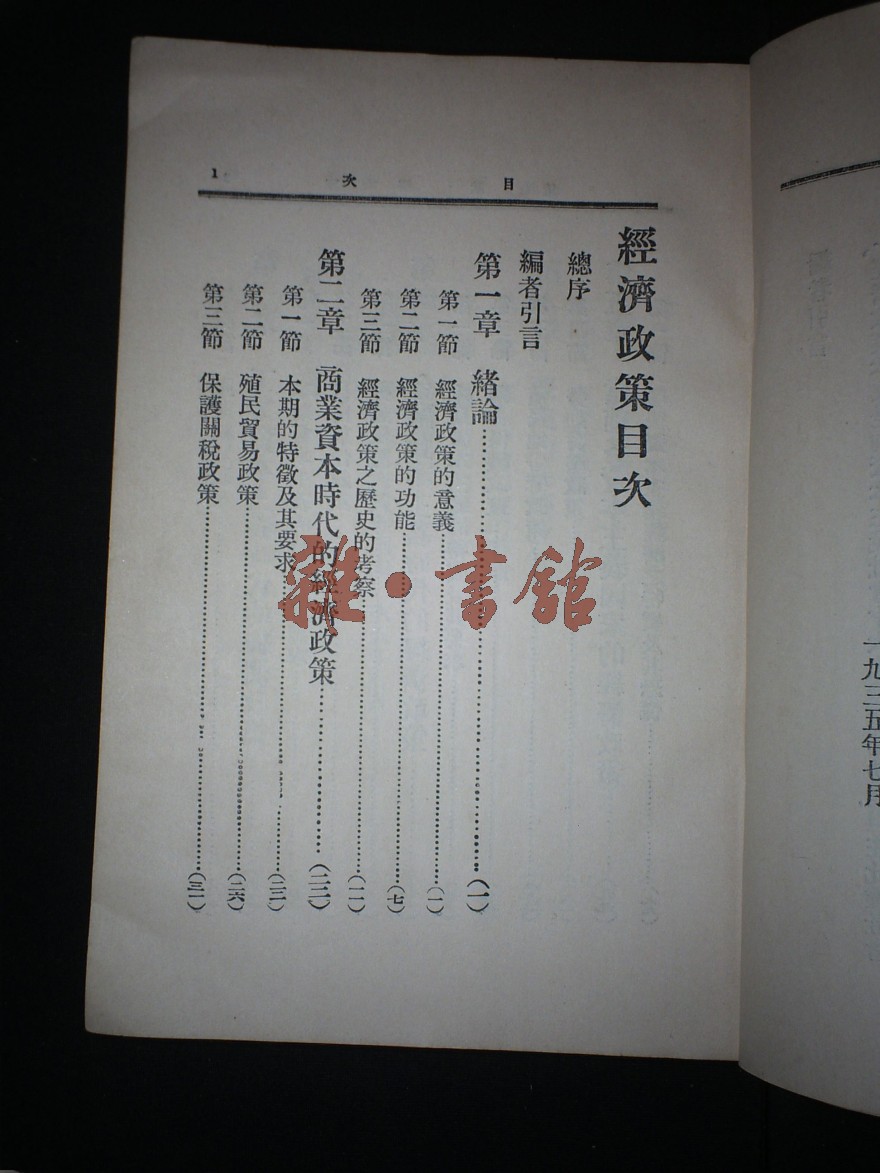 目次 1
經濟政策目次
總序
編者引言
第一章 緒論……(一)
第一節 經濟政策的意義……(一)
第二節 經濟政策的功能……(七)
第三節 經濟政策之歷史的考察……(一一)
第二章 商業資本時代的經濟政策……(二二)
第一節 本期的特徵及其要求……(二二)
第二節 殖民貿易政策……(二六)
第三節 保護關稅政策……(三一)
一九三五年七月
雜·書館